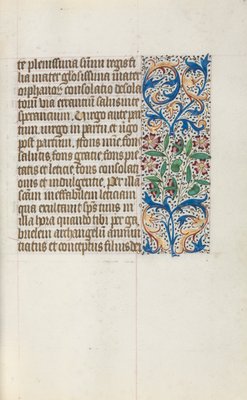 te plenissima sūmi regis fi
lia mater gl'osissima mater
orphanoꝝ consolatio desola
toꝝ via errantiū salus in te
sperantium. Virgo ante par
tum. virgo in partu. et v͛go
post partum. fons mīe. fons
salutis. fons gratie. fons pie
tatis et leticie. fons consolati
onis et indulgentie. Per illā
scām ineffabilem leticiam
qua exultauit sps̄ tuus in
illa hora quando tibi per ga
brielem archangelū annun
tiatus et conceptus filius dei